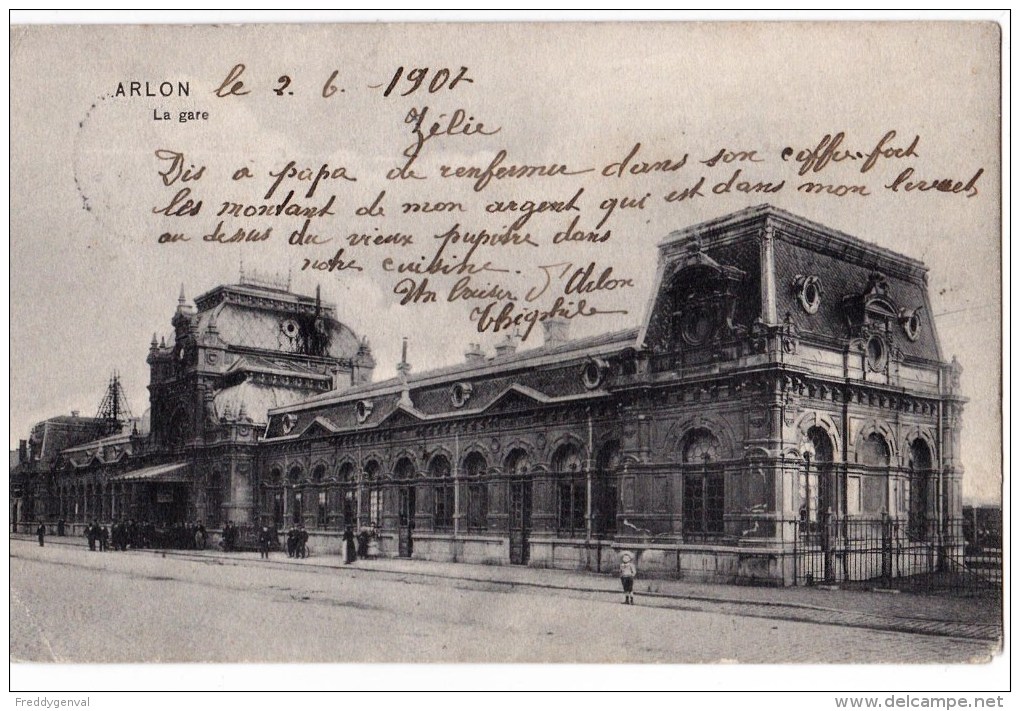 ARLON le 2. 6. - 1907
La gare
Zélie
Dis a papa de renfermer dans son coffre-fort
les montant de mon argent qui est dans mon
au dessus du vieux pupitre dans
notre cuisine.
Un baiser d'Arlon
Théophile
Freddygenval www.delcampe.net